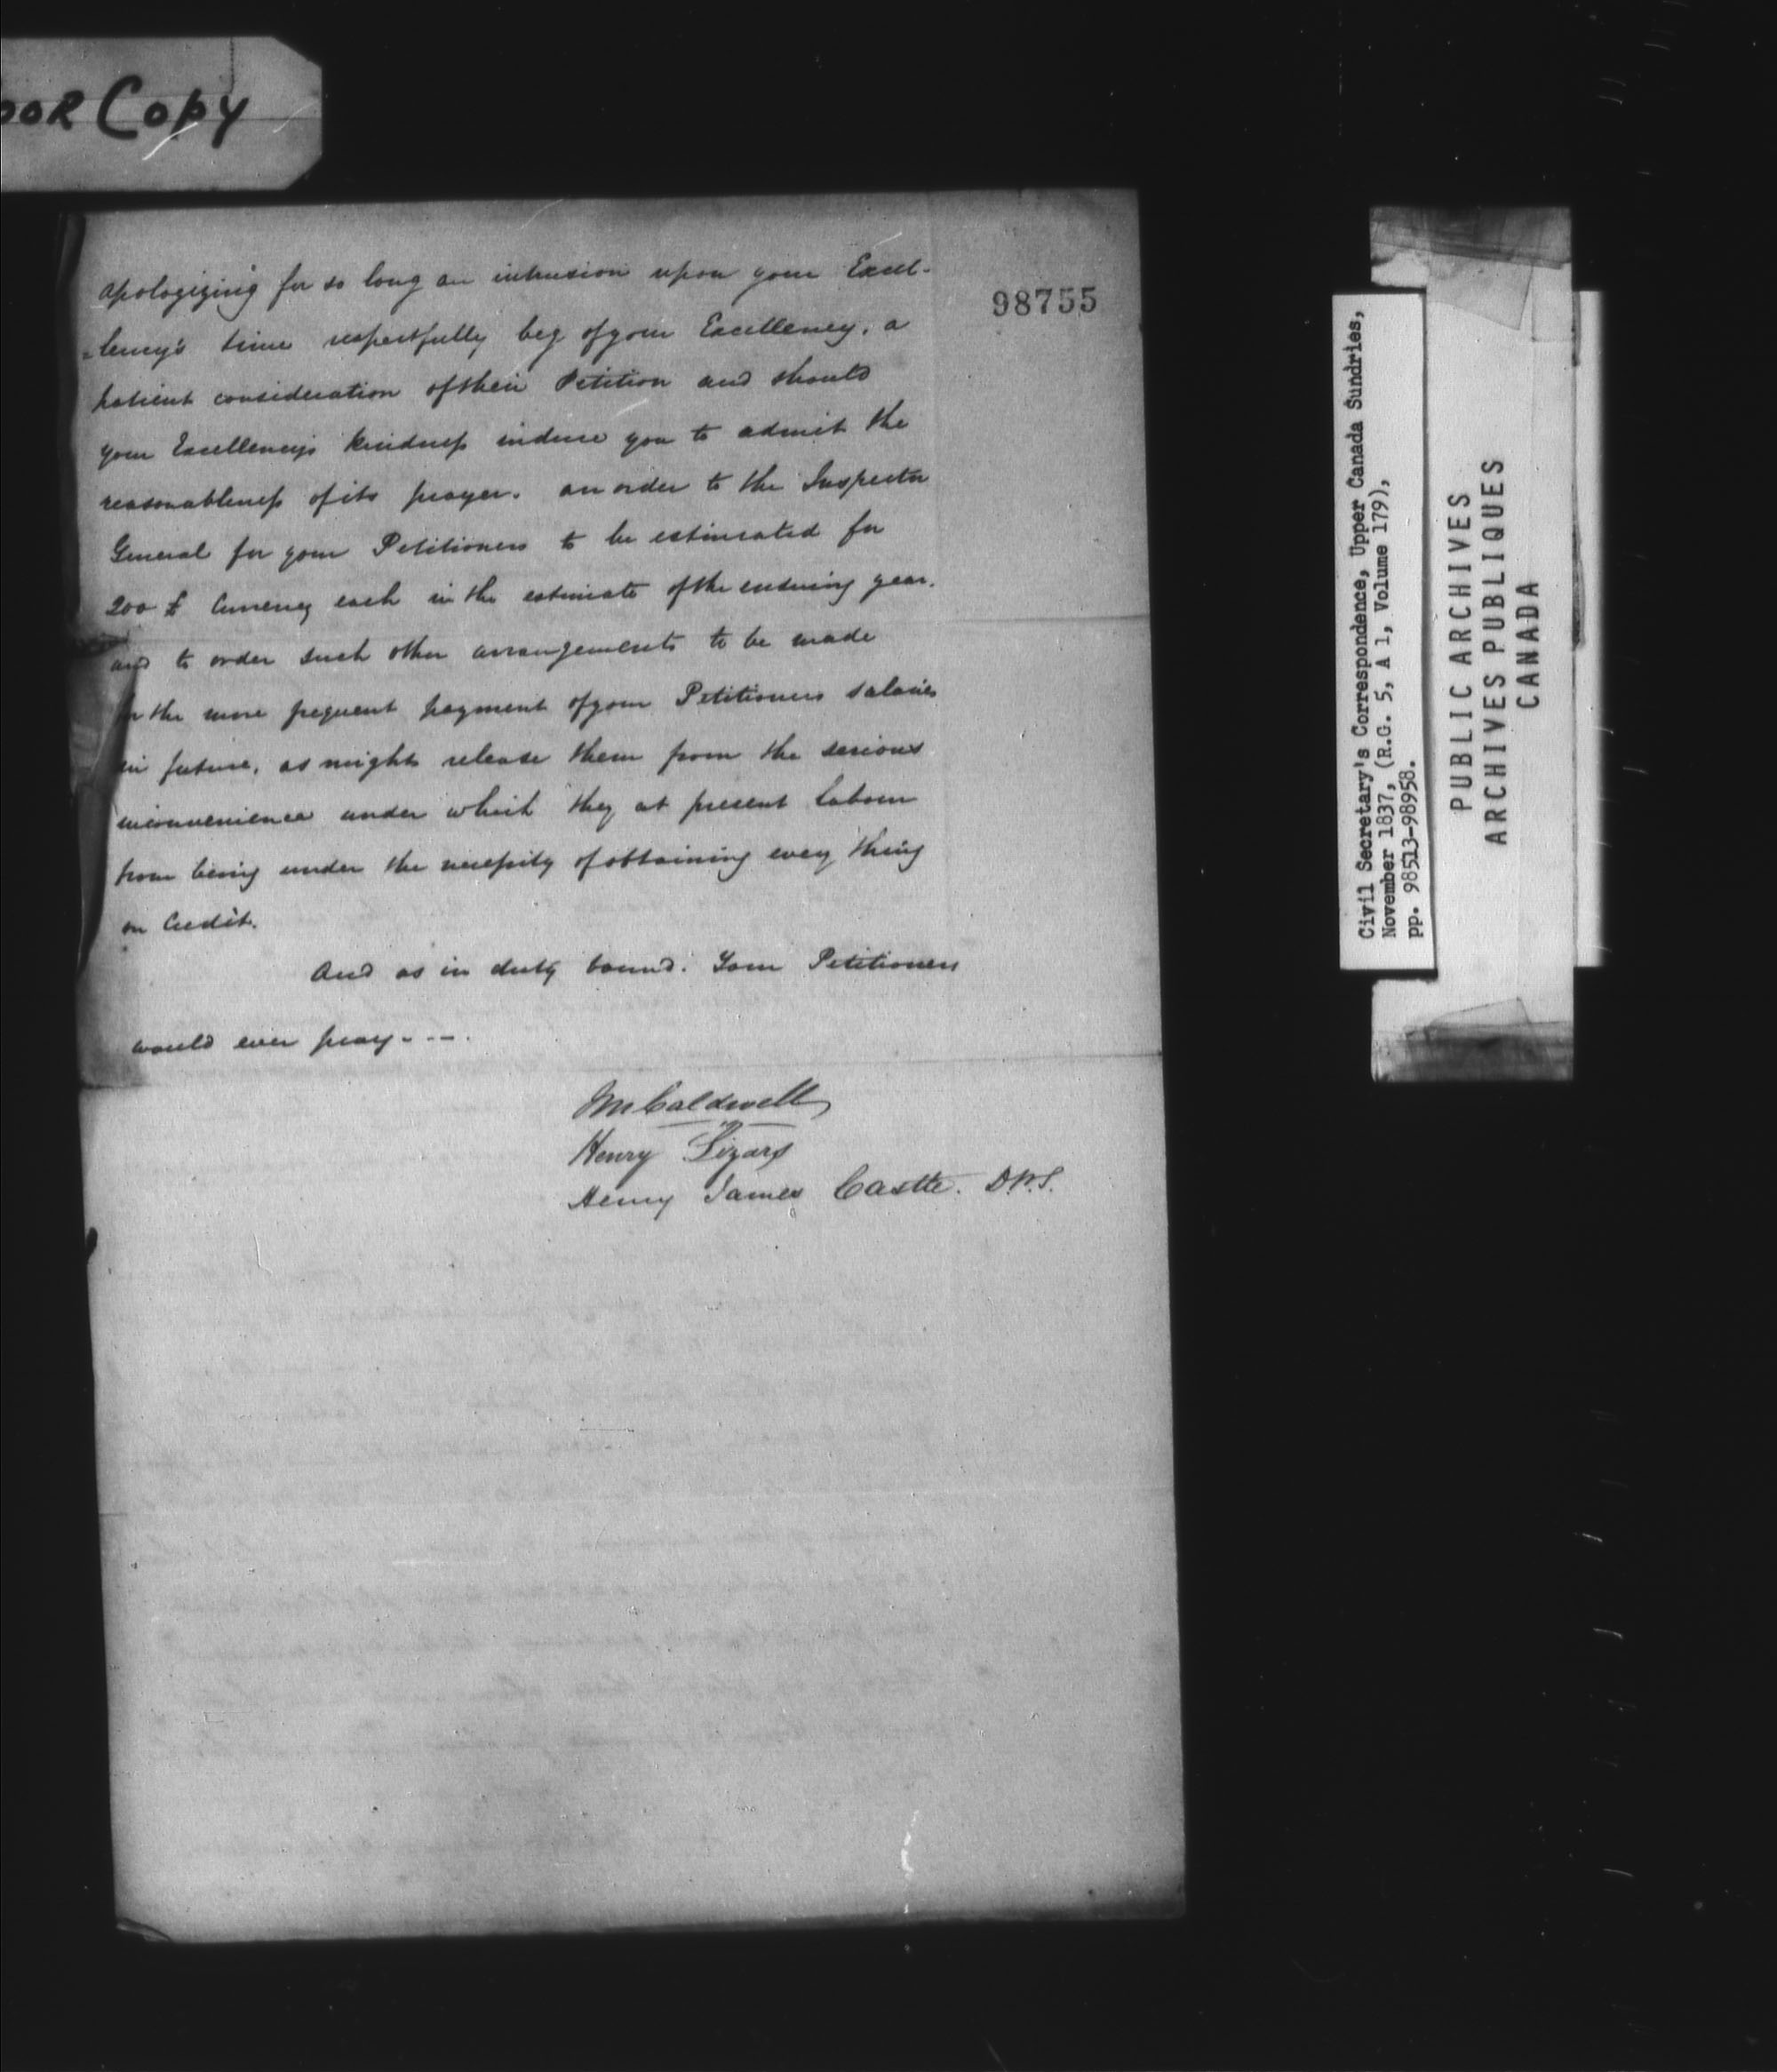 OOR Copy
98755
apologizing for so long an intrusion upon your Excel-
-lency's time respectfully beg of your Excellency, a
patient consideration of their Petition and should
your Excellency's kindness induce you to admit the
reasonableness of its prayer. an order to the Inspector
General for your Petitioners to be estimated for
200 £ Currency each in the estimate of the ensuing year.
and to order such other arrangements to be made
for the more frequent payment of your Petitioners salaries
in future, as might release them from the serious
inconvenience under which they at present labour
from being under the necessity of obtaining every thing
on Credit.
And as in duty bound. Your Petitioners
would ever pray - - -.
Wm Caldwell
Henry Lizars
Henry James Castle. D.P.S.
Civil Secretary's Correspondence, Upper Canada Sundries,
November 1837, (R.G. 5, A 1, Volume 179),
pp. 98513-98958.
PUBLIC ARCHIVES
ARCHIVES PUBLIQUES
CANADA